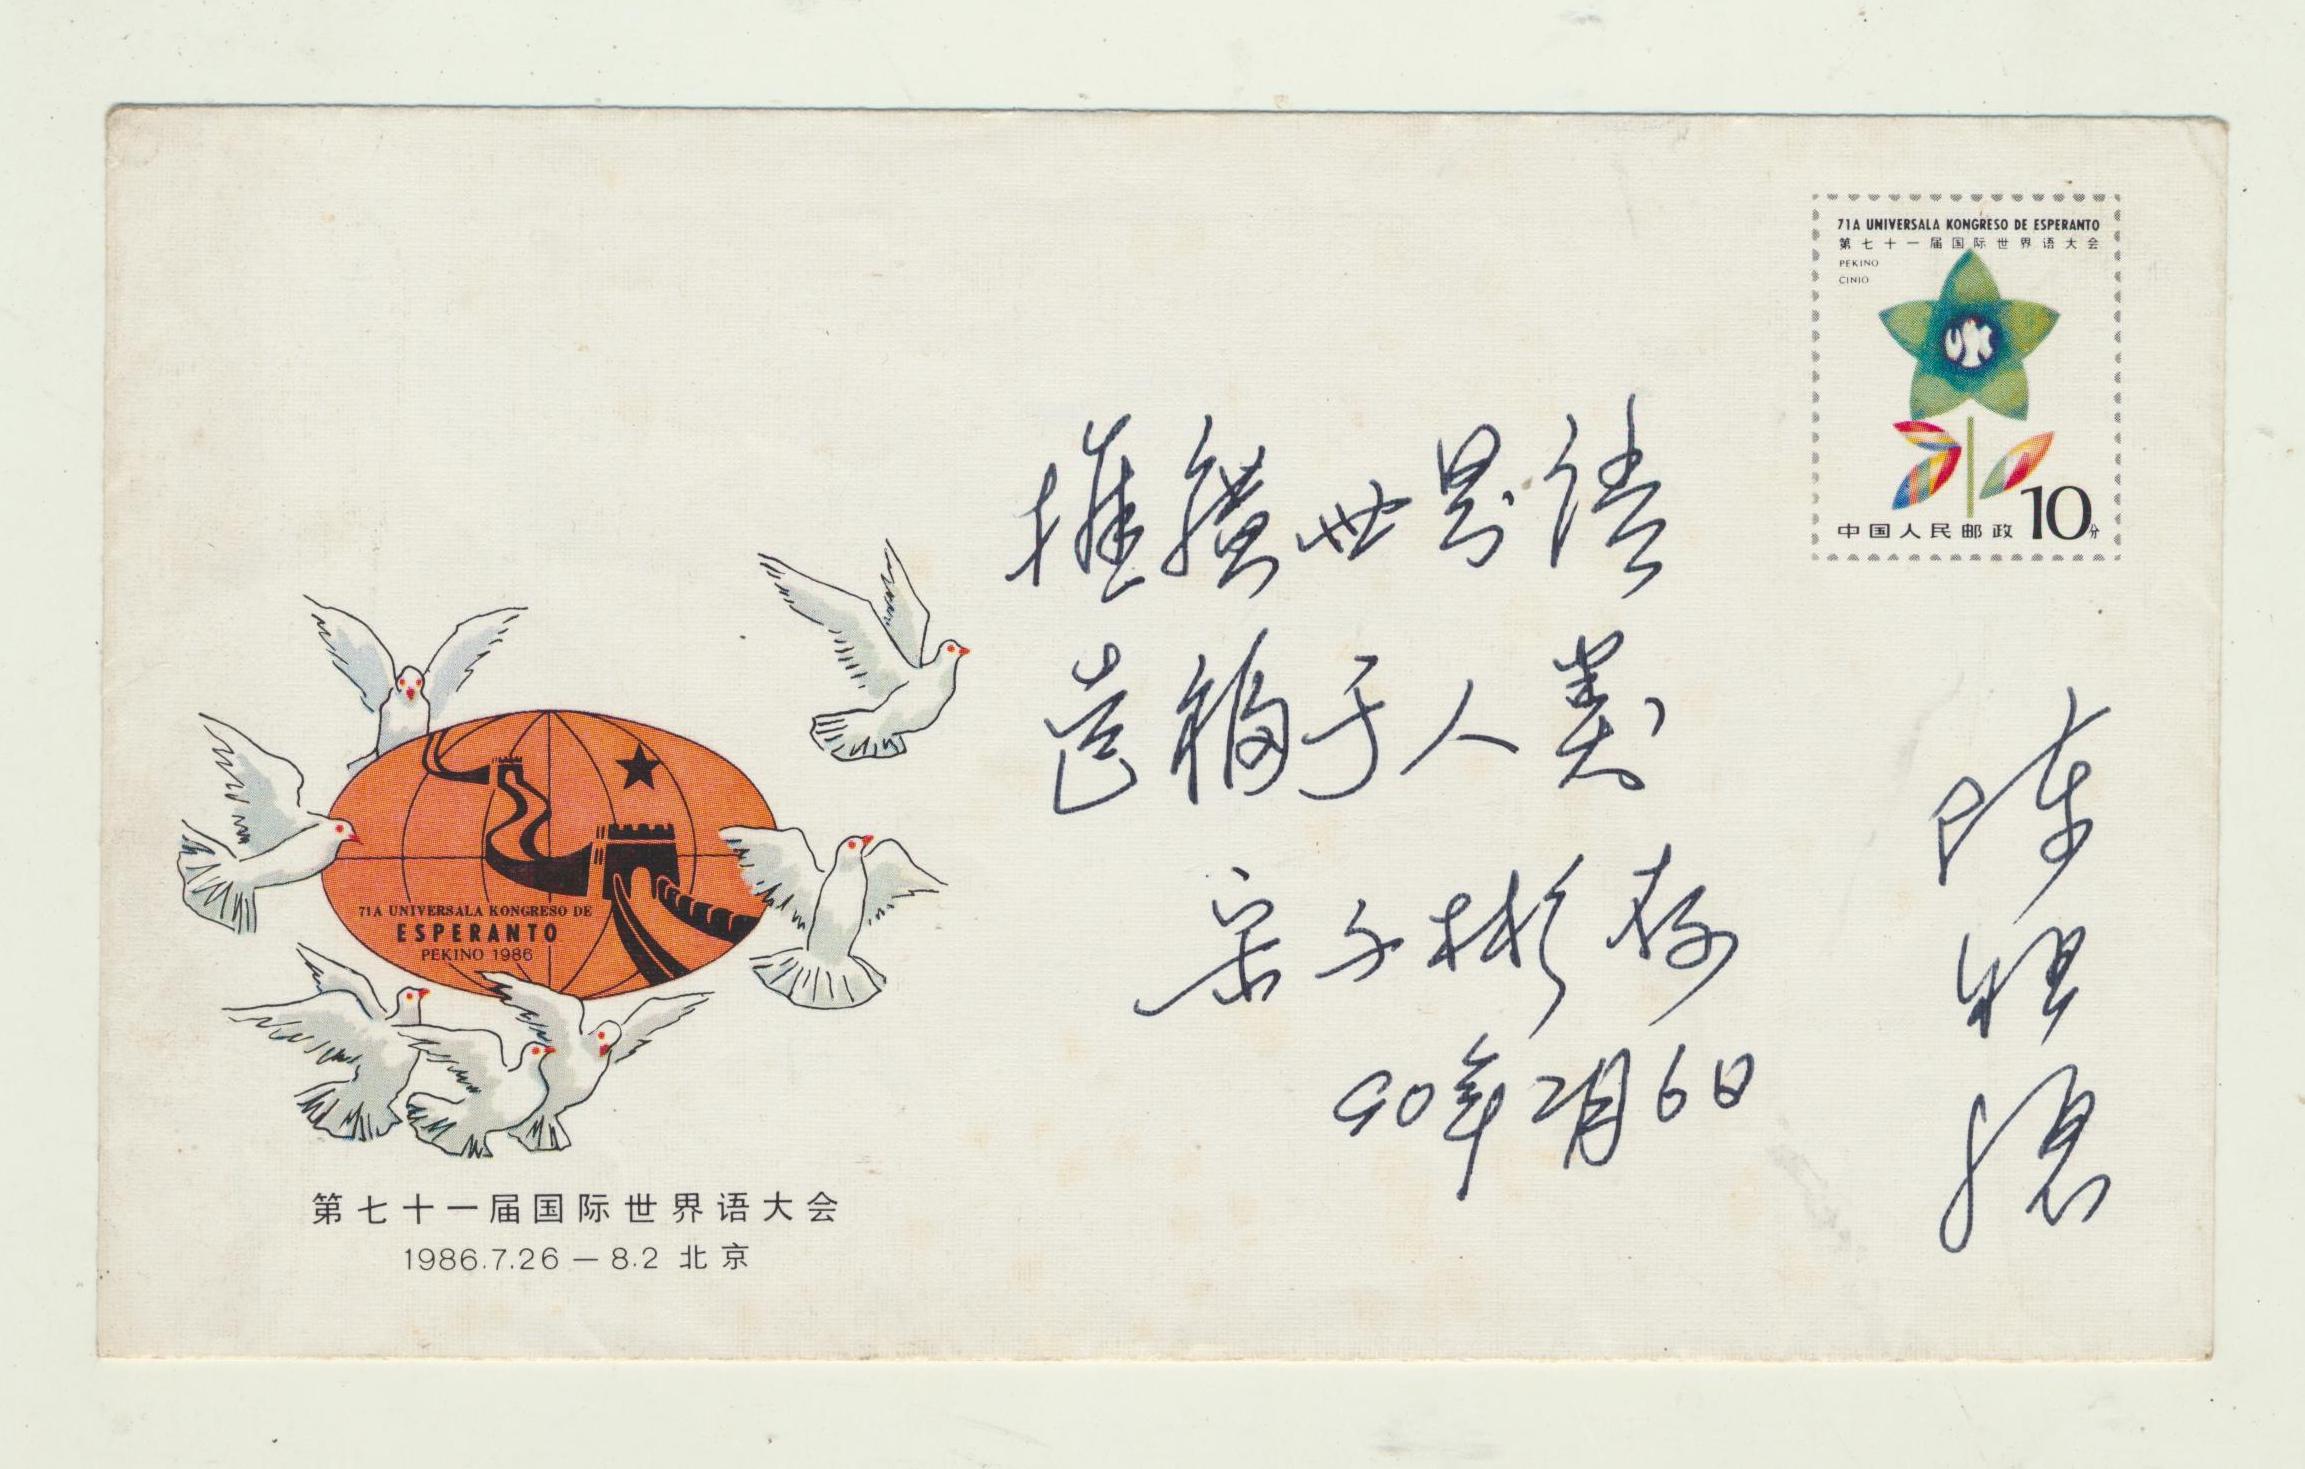 71A UNIVERSALA KONGRESO DE ESPERANTO
第七十一届国际世界语大会
PEKINO
CINIO
中国人民邮政 10分
推广世界语
造福于人类
宋子彬存
90年2月6日
陈
71A UNIVERSALA KONGRESO DE
ESPERANTO
PEKINO 1986
第七十一届国际世界语大会
1986.7.26 — 8.2 北京